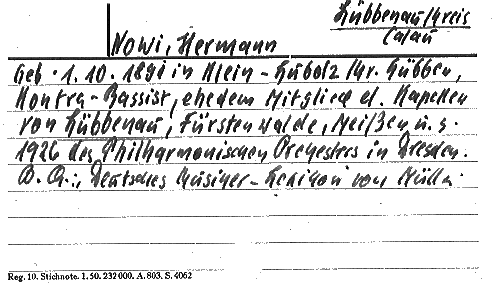 Lübbenau/Kreis
Calau
Nowi, Hermann
Geb. 1.10.1891 in Klein-Lubolz/Kr. Lübben,
Kontra-Bassist, ehedem Mitglied d. Kapellen
von Lübbenau, Fürstenwalde, Meißen u. s.
1926 des Philharmonischen Orchesters in Dresden.
Deutsches Musiker-Lexikon von Müller
Reg. 10. Stichnote. 1. 50. 232000. A. 803. S. 4062